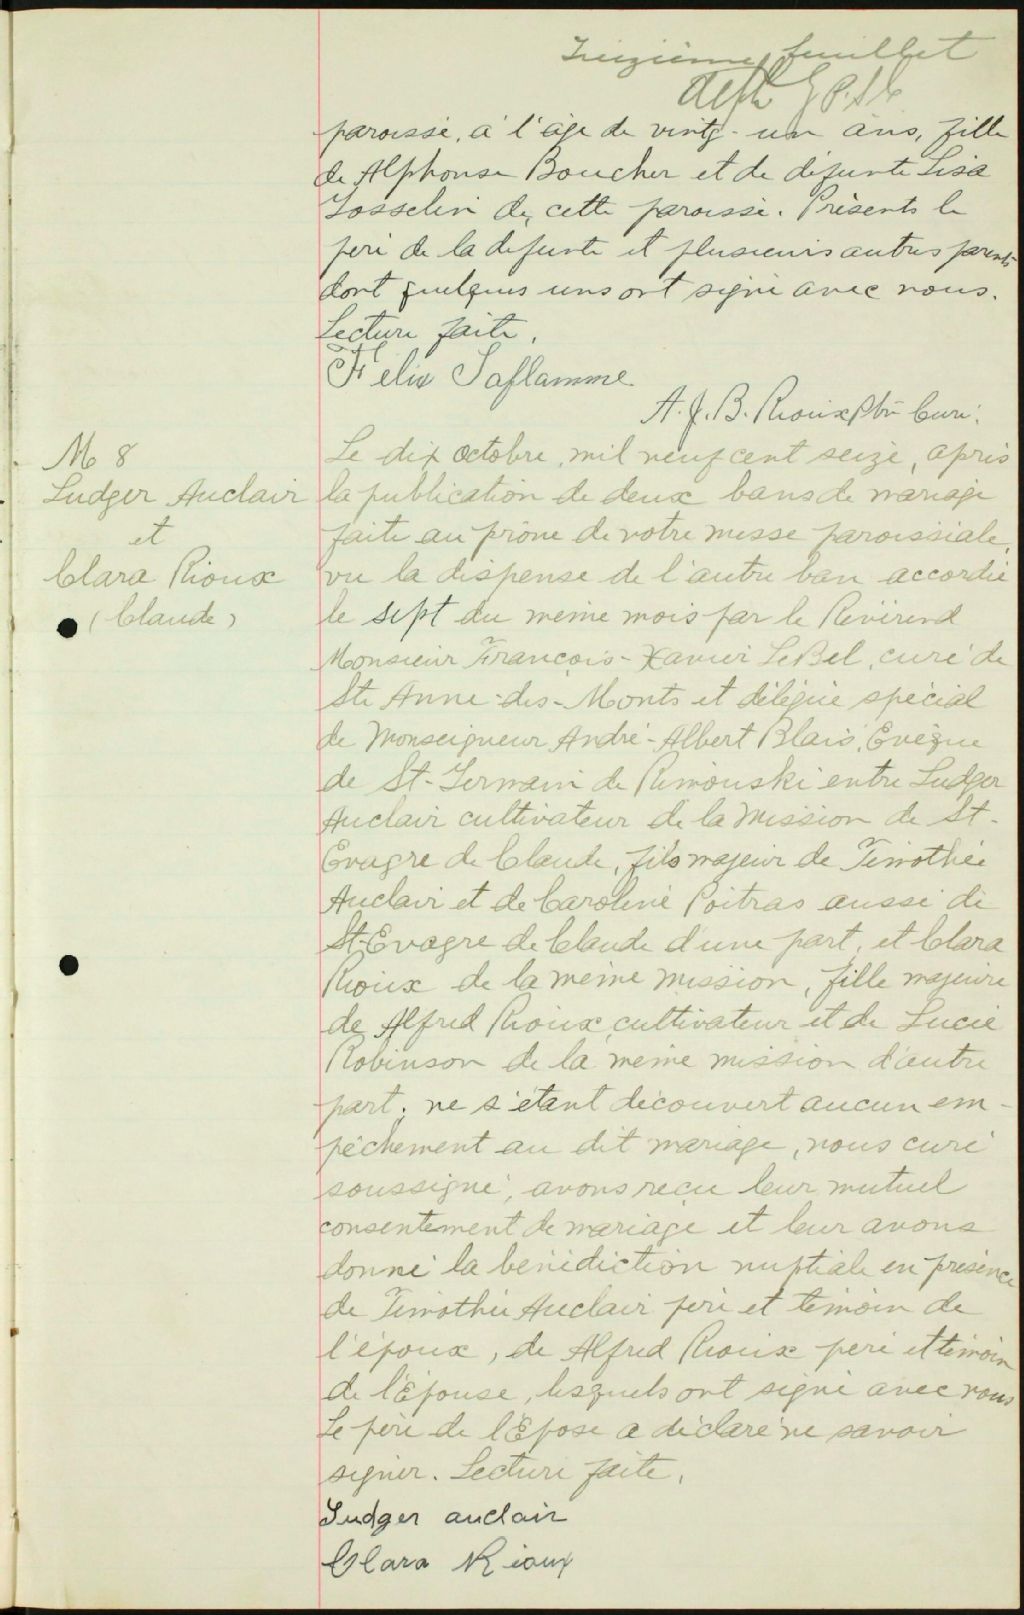 Treizième feuillet
paroisse, à l'âge de vingt-un ans, fille
de Alphonse Boucher et de défunte Lisa
Gosselin de cette paroisse. Présents le
père de la défunte et plusieurs autres parents
dont quelques uns ont signé avec nous.
Lecture faite.
Félix Laflamme
A. J. B. Rioux Ptre Curé.
M 8
Ludger Auclair
et
Clara Rioux
(Claude)
Le dix octobre, mil neuf cent seize, après
la publication de deux bans de mariage
faite au prône de votre messe paroissiale,
vu la dispense de l'autre ban accordée
le sept du même mois par le Révérend
Monsieur François-Xavier LeBel, curé de
Ste Anne-des-Monts et délégué spécial
de Monseigneur André-Albert Blais, Evèque
de St-Germain de Rimouski entre Ludger
Auclair cultivateur de la Mission de St-
Evagre de Claude, fils majeur de Timothée
Auclair et de Caroline Poitras aussi de
St-Evagre de Claude d'une part, et Clara
Rioux de la même mission, fille majeure
de Alfred Rioux, cultivateur et de Lucie
Robinson de la même mission d'autre
part; ne s'étant découvert aucun em-
pêchement au dit mariage, nous curé
soussigné, avons reçu leur mutuel
consentement de mariage et leur avons
donné la bénédiction nuptiale en présence
de Timothée Auclair père et témoin de
l'époux, de Alfred Rioux père et témoin
de l'Épouse, lesquels ont signé avec nous
Le père de l'Épose a déclaré ne savoir
signer. Lecture faite.
Ludger auclair
Clara Rioux